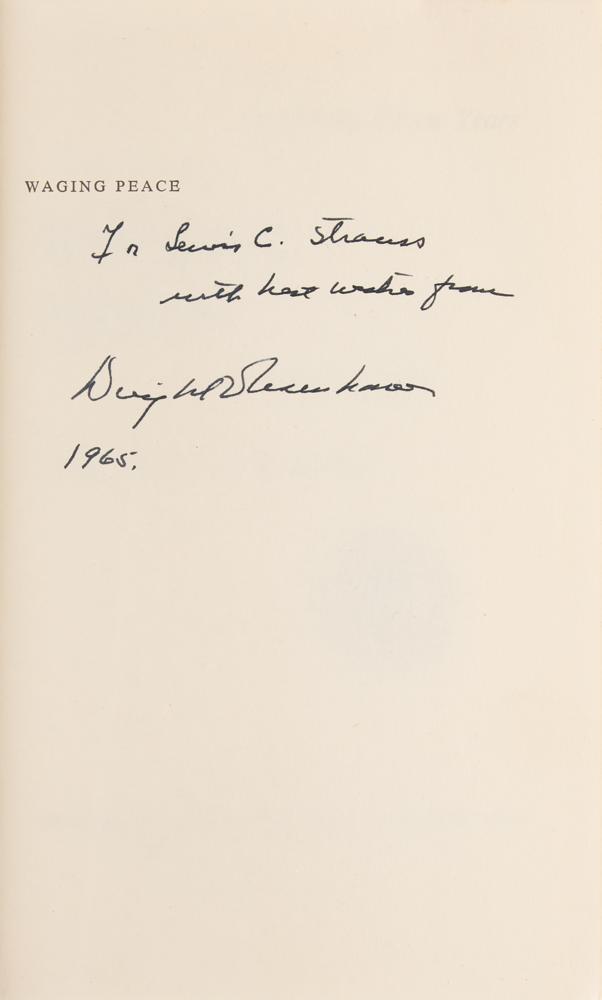 WAGING PEACE
For Lewis C. Strauss
with best wishes from
Dwight D Eisenhower
1965.